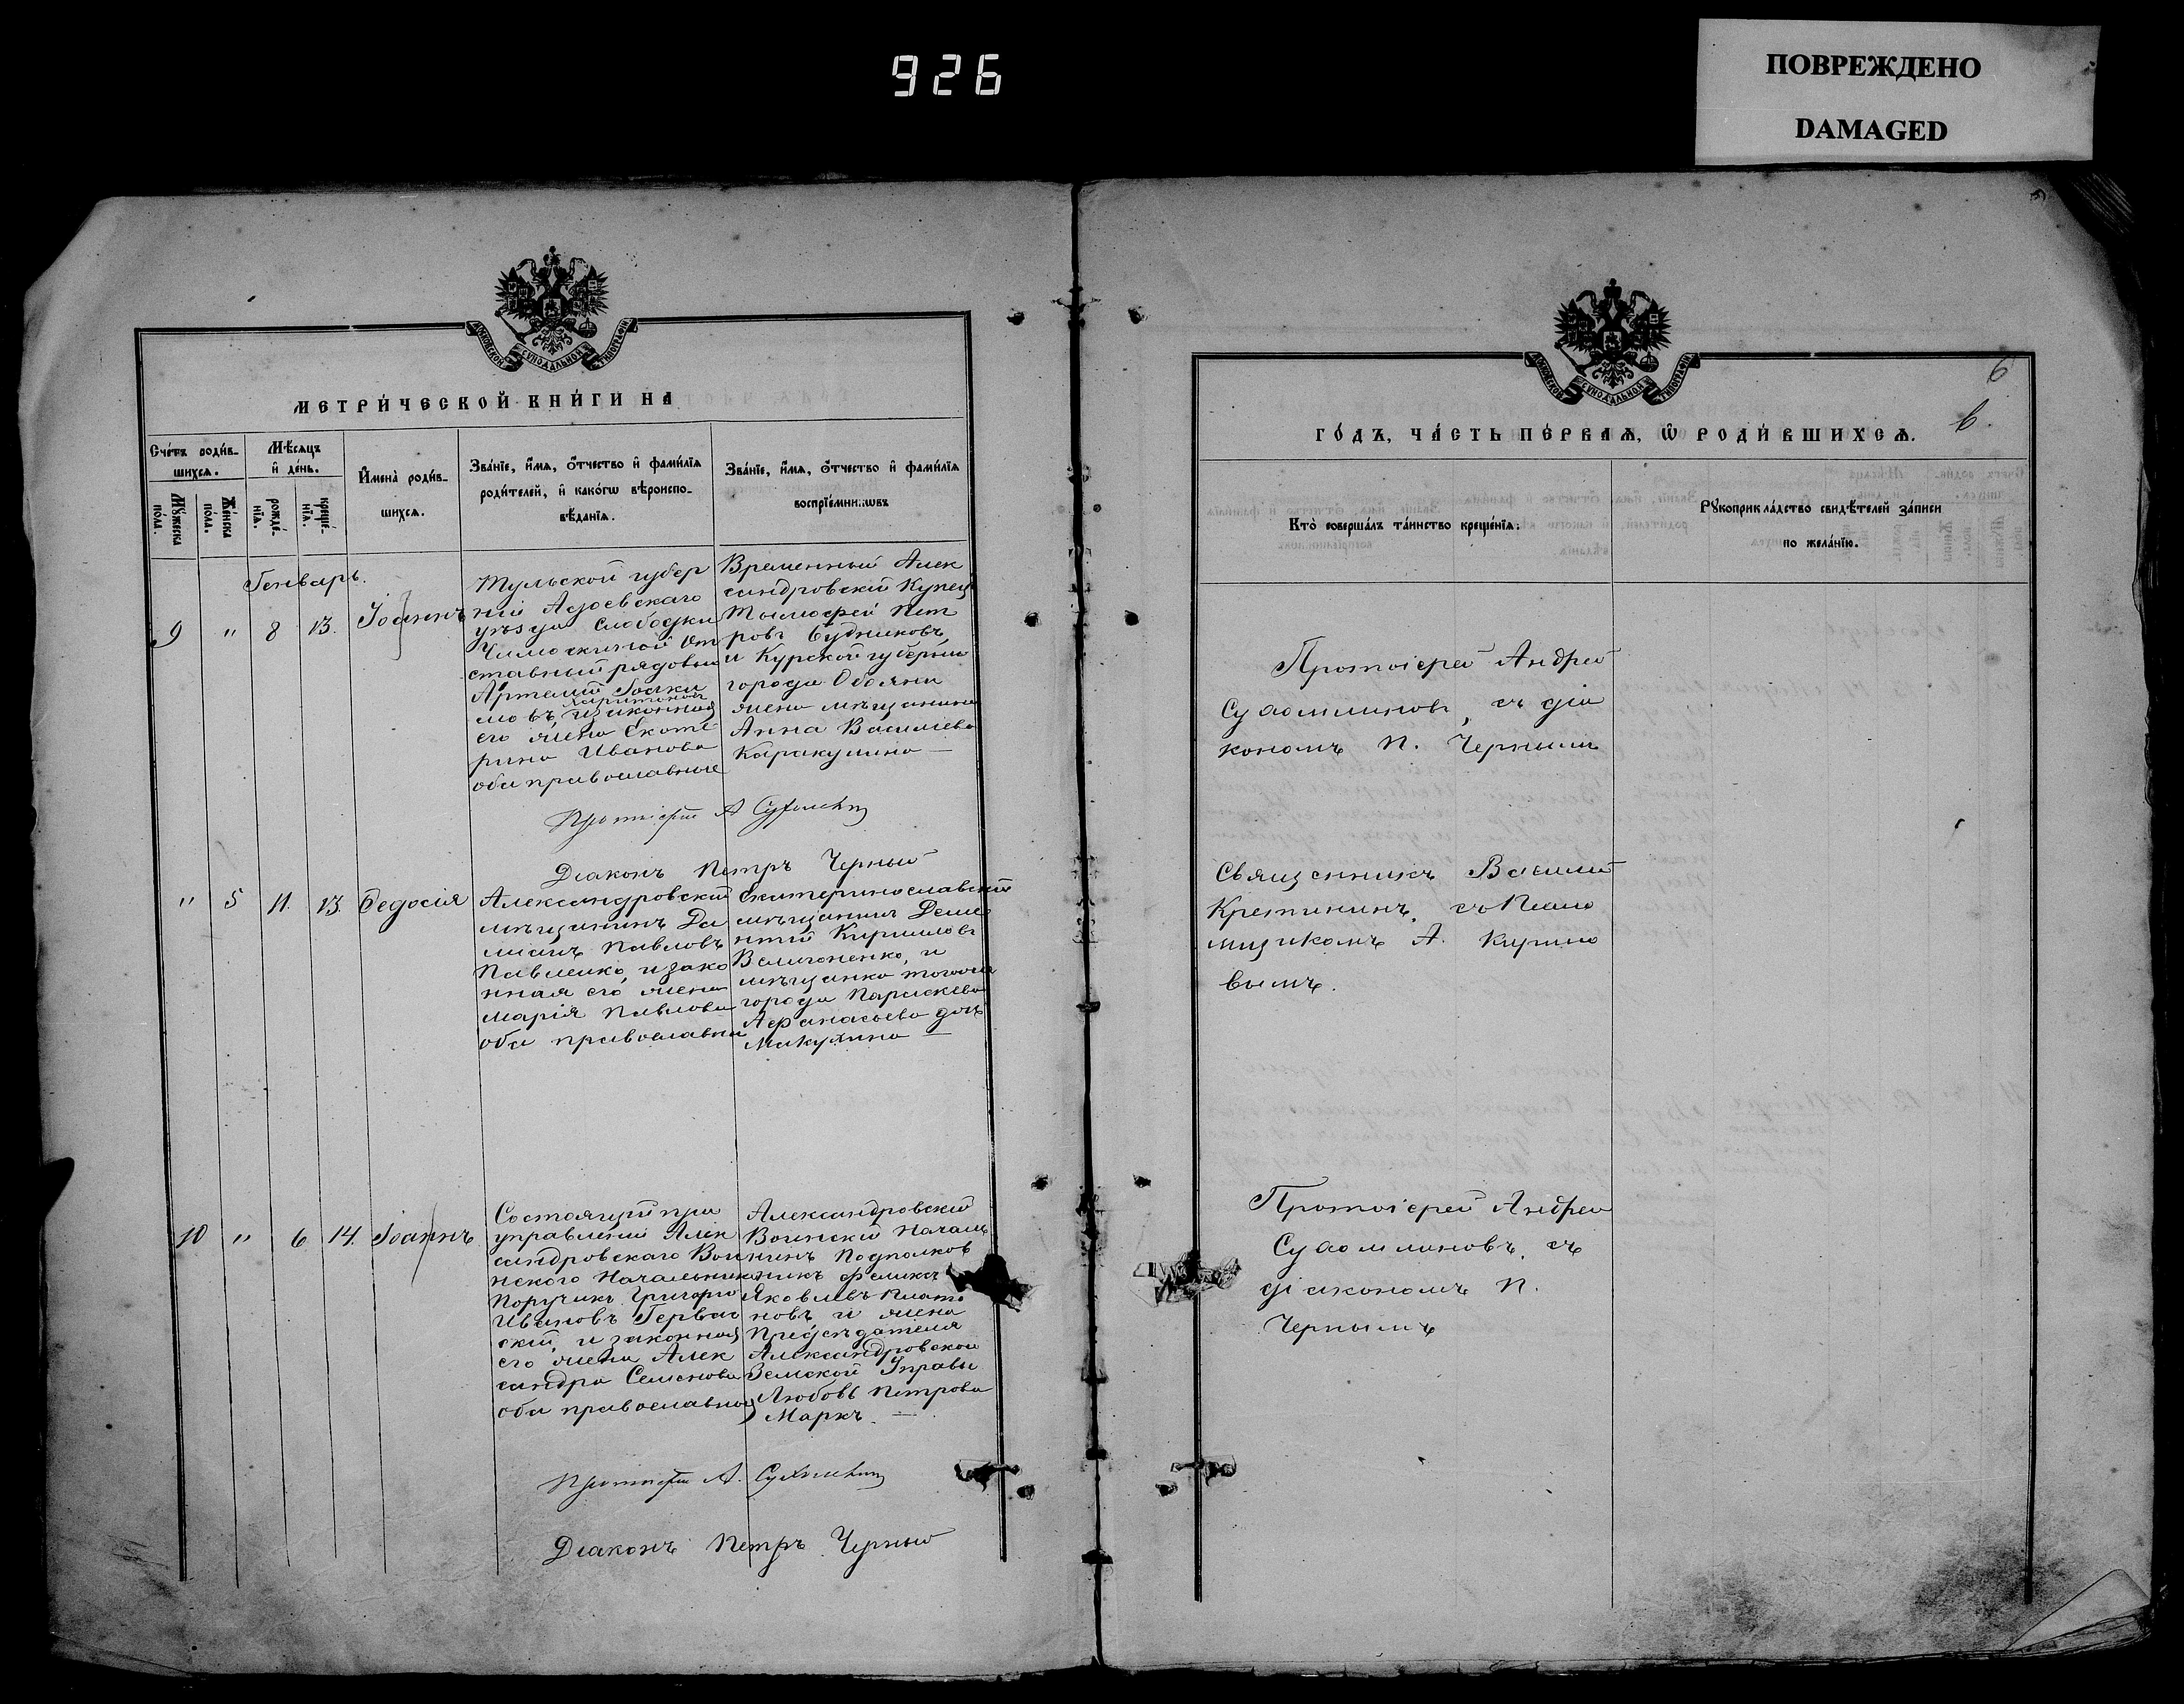 926
ПОВРЕЖДЕНО
DAMAGED
МОСКОВСКОЙ СѴНОДАЛЬНОЙ ТИПОГРАФІИ
МЕТРИ́ЧЕСКОЙ КНИ́ГИ НА
Сче́тъ роди́в-
шихсѧ.
Мѣ́сѧцъ
и҆ де́нь.
И҆мена̀ роди́в-
шихсѧ.
Зва́нїе, и҆́мѧ, ѻ҆́тчество и҆ фами́лїѧ
роди́телей, и҆ како́гѡ вѣроиспо-
вѣ́данїѧ.
Зва́нїе, и҆́мѧ, ѻ҆́тчество и҆ фами́лїѧ
воспрїе́мникѡвъ
Мꙋ́жеска
по́ла.
Же́нска
по́ла.
рожде́-
нїѧ.
креще́-
нїѧ.
Генварь.
9 " 8 13. Іоаннъ
Тульской губер
ніи
уѣзда Слободки
От
ставный рядовый
Артемій
Харитоновъ
мовъ, и законная
его жена Екате
рина Иванова
оба православные
Временный Алек
сандровскій Купецъ
Тимофей Пет
ровъ Будниковъ,
и Курской губерніи
города Обояни
жена мѣщанина
Анна Васильева
Каракулина —
Протоіерей А Сухомлинъ
Діаконъ Петръ Черный
" 5 11. 13. Ѳедосія
Александровскій
мѣщанинъ Да
міанъ Павловъ
Павленко, и зако
нная его жена
Марія Павлова
оба православные
Екатеринославскій
мѣщанинъ Деме
нтій Кирилловъ
и
мѣщанка тогоже
города Параскева
Афанасьева дочь
Макухина —
10 " 6 14. Іоаннъ
Состоящій при
управленіи Алек
сандровскаго Вои
нскаго Начальника
Поручикъ Григорій
Ивановъ
скій, и законная
его жена Алек
сандра Семенова
оба православные
Александровскій
Воинскій Началь
никъ Подполков
никъ Феликсъ
Яковлевъ Плато
новъ и жена
Предсѣдателя
Александровской
Земской Управы
Любовь Петрова
Маркъ. —
Протоіерей А. Сухомлинъ
Діаконъ Петръ Черный
МОСКОВСКОЙ СѴНОДАЛЬНОЙ ТИПОГРАФІИ
6
6.
ГО́ДЪ, ЧА́СТЬ ПЕ́РВАѦ, Ѡ҆ РОДИ́ВШИХСѦ.
Кто̀ соверша́лъ та́инство креще́нїѧ:
Рꙋкоприкла́дство свидѣ́телей за́писи
по жела́нїю.
Протоіерей Андрей
Сухомлиновъ, съ діа
кономъ П. Чернымъ
Священникъ Василій
Кретининъ, съ Псало
мщикомъ А. Кирило
вымъ.
Протоіерей Андрей
Сухомлиновъ, съ
діакономъ П.
Чернымъ